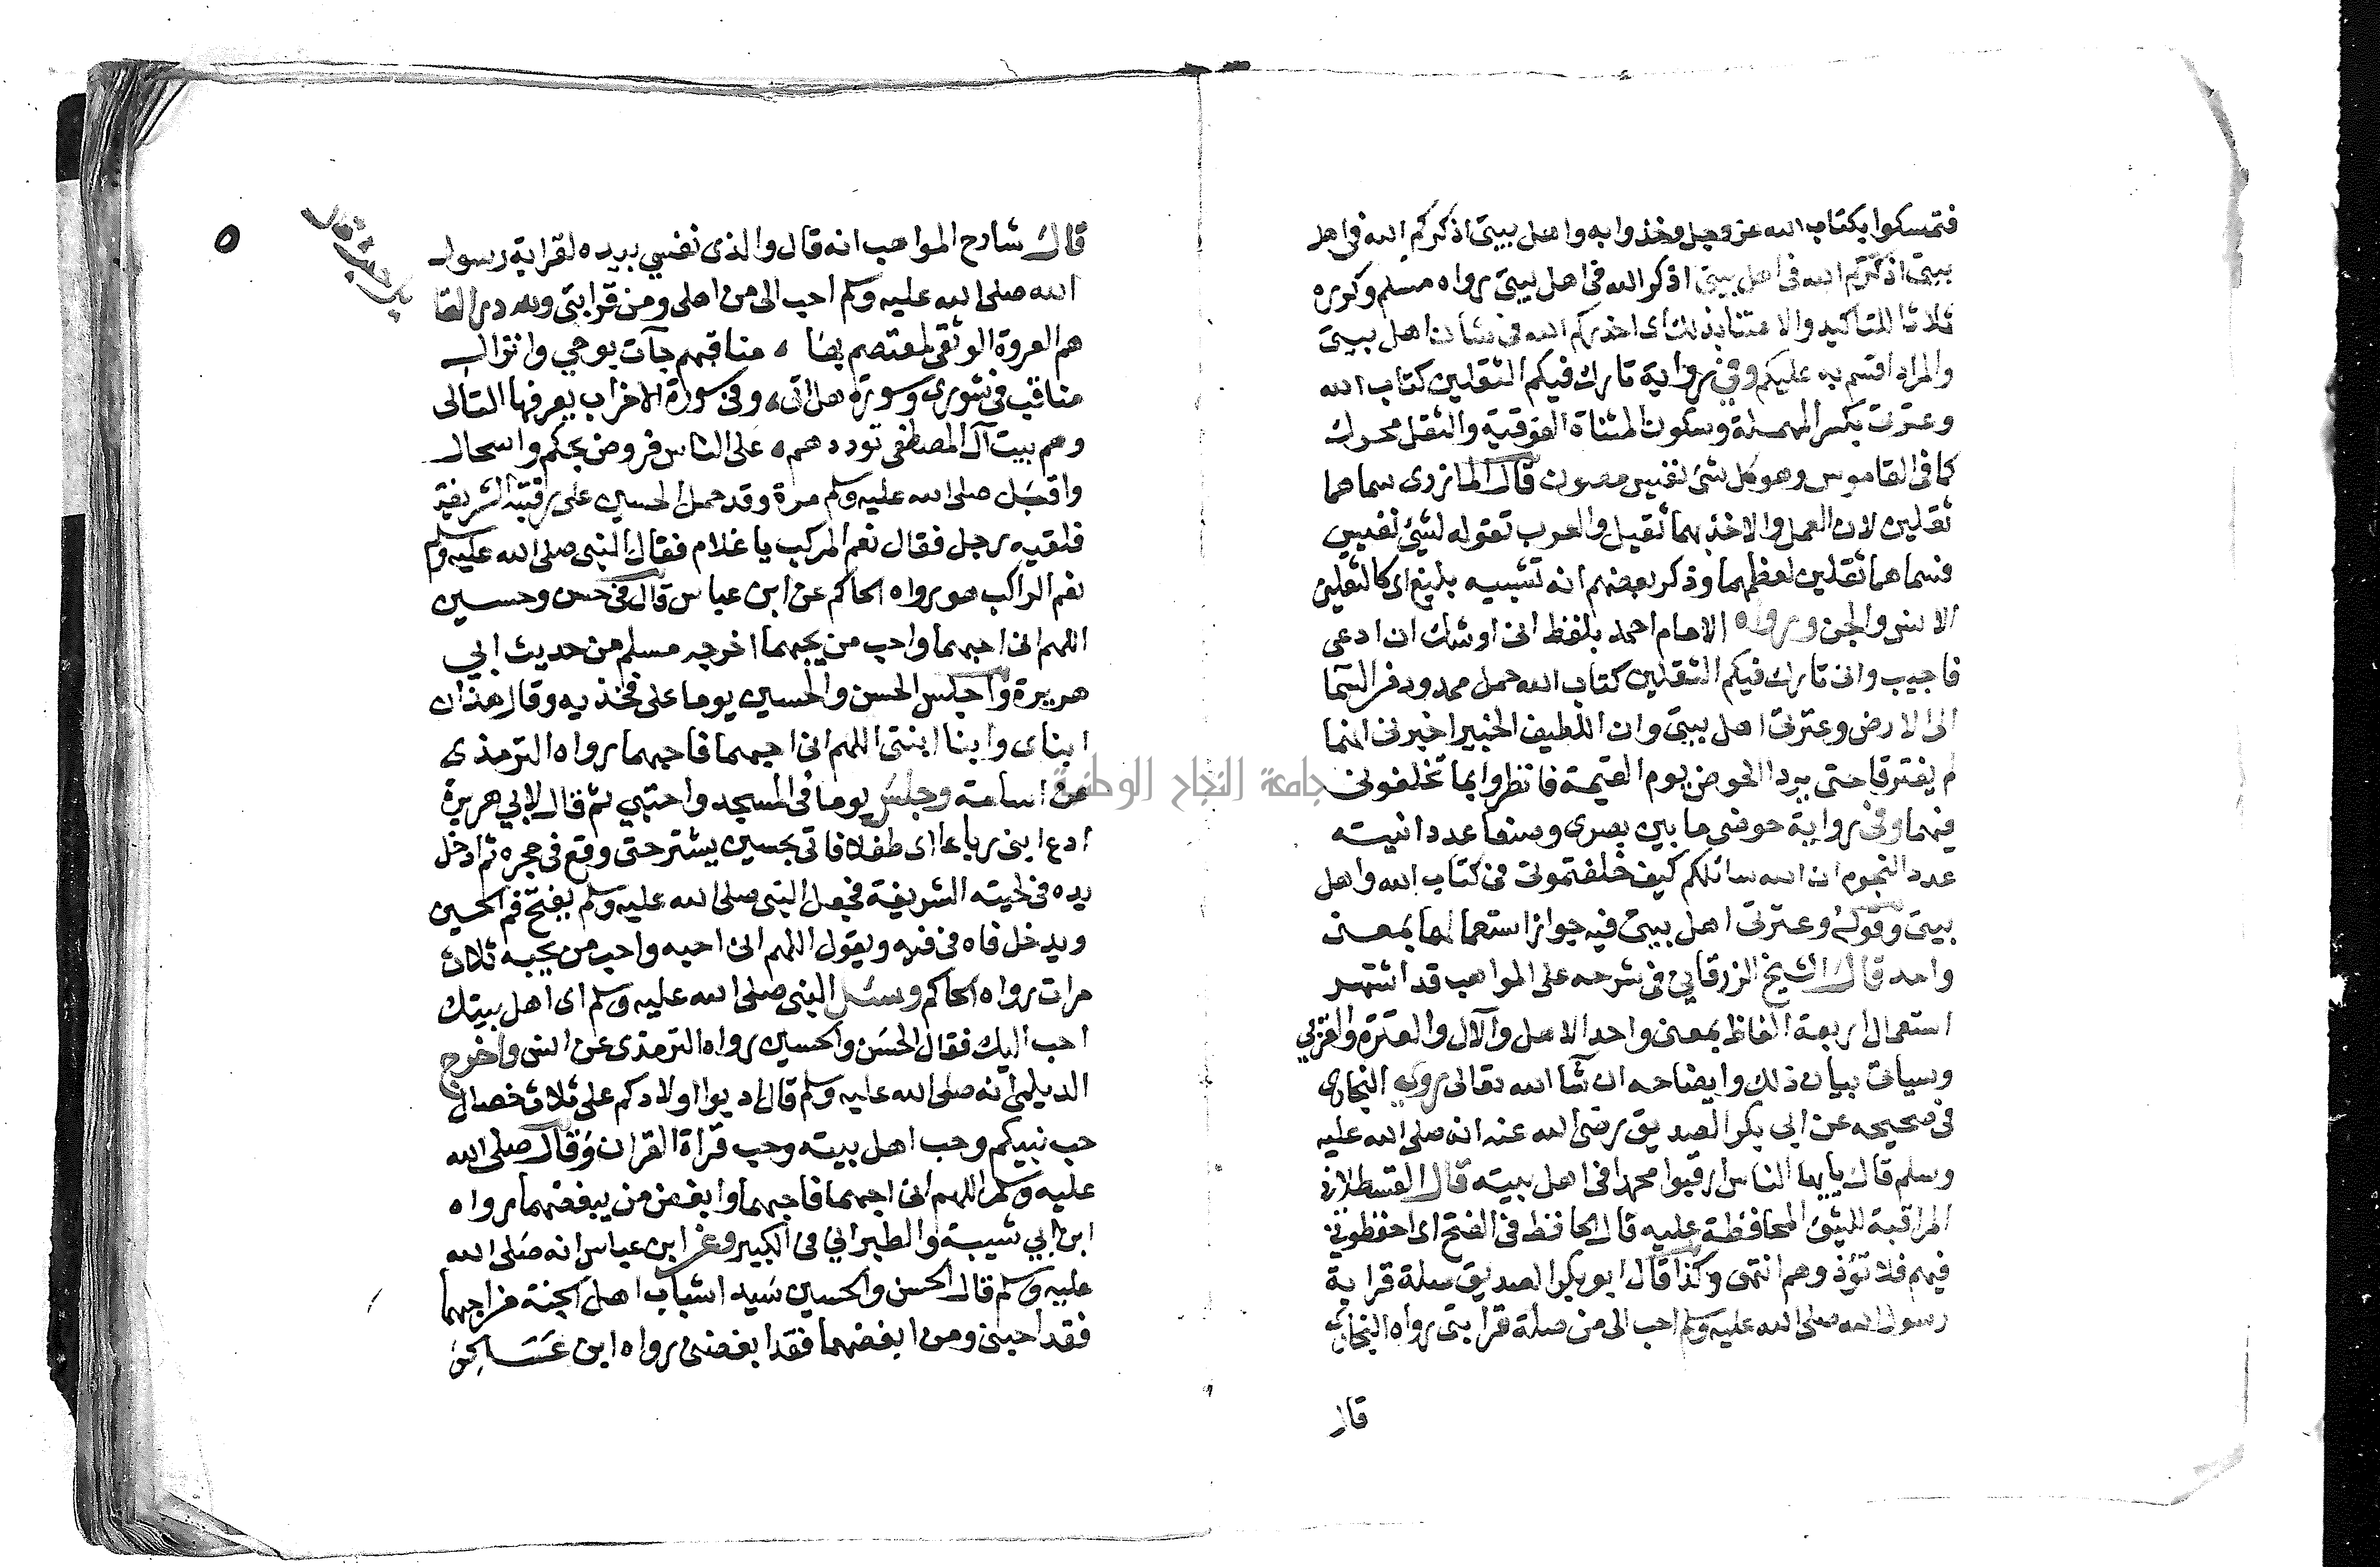 فتمسكوا بكتاب الله عز وجل وخذوا به واهل بيتى اذكركم الله فى اهل
بيتى اذكركم الله فى اهل بيتى اذكر الله فى اهل بيتى رواه مسلم وكرره
ثلاثا للتاكيد والاعتنا بذلك اى احذركم الله فى شان اهل بيتى
والمراد اقسم به عليكم وفى رواية تارك فيكم الثقلين كتاب الله
وعترتى بكسر المهملة وسكون المثناة الفوقية والثقل محرك
كما فى القاموس وهو كل شئ نفيس مصون قال المازرى سماهما
ثقلين لان العمل والاخذ بهما ثقيل والعرب تقوله لشئ نفيس
فسماهما ثقلين لعظمهما وذكر بعضهم انه تشبيه بليغ اى كالثقلين
الانس والجن ورواه الامام احمد بلفظ انى اوشك ان ادعى
فاجيب وانى تارك فيكم الثقلين كتاب الله حبل ممدود من السما
الى الارض وعترتى اهل بيتى وان اللطيف الخبير اخبرنى انهما
لم يفترقا حتى يردا الحوض يوم القيمة فانظروا بما تخلفونى
فيهما وفى رواية حوضى ما بين بصرى وصنعا عدد انيته
عدد النجوم ان الله سائلكم كيف خلفتمونى فى كتاب الله واهل
بيتى وقوله وعترتى اهل بيتى فيه جواز استعمالها بمعنى
واحد قال الشيخ الزرقانى فى شرحه على المواهب قد اشتهر
استعمال اربعة الفاظ بمعنى واحد الاهل والآل والعترة والقربى
وسياتى بيان ذلك وايضاحه ان شآ الله تعالى روى البخارى
فى صحيحه عن ابى بكر الصديق رضى الله عنه انه صلى الله عليه
وسلم قال يايها الناس ارقبوا محمدا فى اهل بيته قال القسطلانى
المراقبة للشئ المحافظة عليه قال الحافظ فى الفتح اى احفظونى
فيهم فلا تؤذوهم انتهى وكذا قال ابو بكر الصديق صلة قرابة
رسول الله صلى الله عليه وسلم احب الى من صلة قرابتى رواه البخارى
قال
٥
قال شارح المواهب انه قال والذى نفسي بيده لقرابة رسول
الله صلى الله عليه وسلم احب الى من اهلى ومن قرابتى ولله در القا
هم العروة الوثقى لمعتصم بها ، مناقبهم جآت بوحي وانزال
مناقب فى شورى وسورة هل اتى ، وفى سورة الاحزاب يعرفها التالى
وهم بيت آل المصطفى توددهم ، على الناس فروض بحكم واسجال
واقبل صلى الله عليه وسلم مرة وقد حمل الحسين على رقبته الشريفة
فلقيه رجل فقال نعم المركب يا غلام فقال النبى صلى الله عليه وسلم
نعم الراكب هو رواه الحاكم عن ابن عباس قال فى حسن وحسين
اللهم انى احبهما واحب من يحبهما اخرجه مسلم من حديث ابي
هريرة واجلس الحسن والحسين يوما على فخذيه وقال هذان
ابناى وابنا ابنتى اللهم انى احبهما فاحبهما رواه الترمذى
عن اسامة وجلس يوما فى المسجد واحتبي ثم قال لابي هريرة
ادع ابنى رباعا اى طفلا فاتى بحسين يشتد حتى وقع فى حجره ثم ادخل
يده فى لحيته الشريفة فجعل النبى صلى الله عليه وسلم يفتح فم الحسين
ويدخل فاه فى فيه ويقول اللهم انى احبه واحب من يحبه ثلاث
مرات رواه الحاكم وسئل النبى صلى الله عليه وسلم اى اهل بيتك
احب اليك فقال الحسن والحسين رواه الترمذى عن انس واخرج
الديلمى انه صلى الله عليه وسلم قال ادبوا اولادكم على ثلاث خصال
حب نبيكم وحب اهل بيته وحب قراة القران وقال صلى الله
عليه وسلم اللهم انى احبهما فاحبهما وابغض من يبغضهما رواه
ابن ابي شيبة والطبرانى فى الكبير وعن ابن عباس انه صلى الله
عليه وسلم قال الحسن والحسين سيدا شباب اهل الجنة من احبهما
فقد احبنى ومن ابغضهما فقد ابغضنى رواه ابن عساكر
جامعة النجاح الوطنية